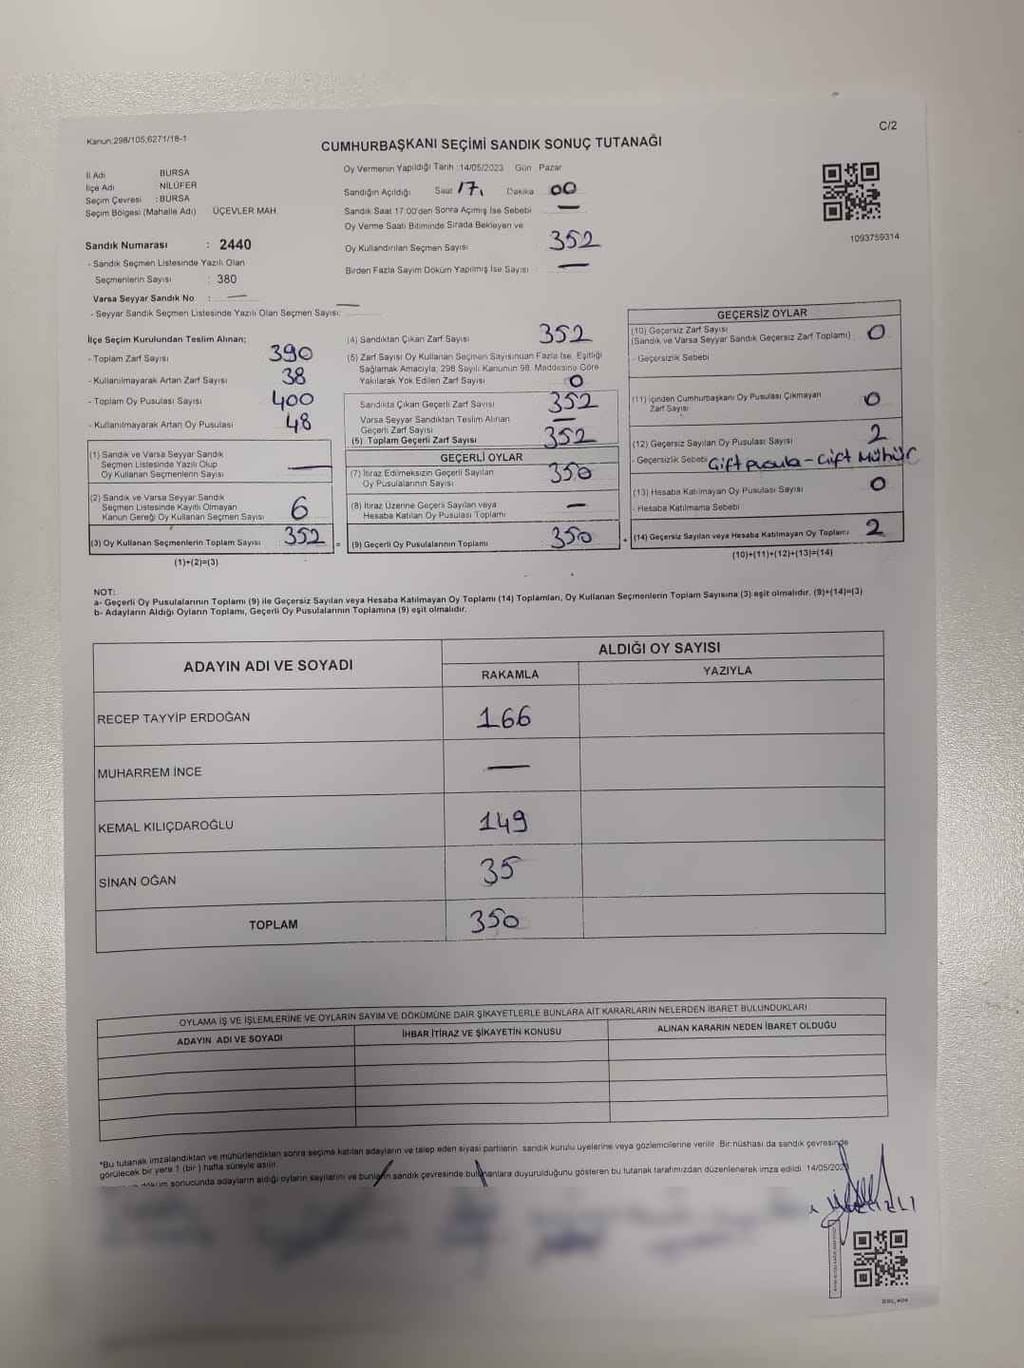 Kanun:298/105;6271/18-1
C/2
CUMHURBAŞKANI SEÇİMİ SANDIK SONUÇ TUTANAĞI
İl Adı BURSA
İlçe Adı NİLÜFER
Seçim Çevresi : BURSA
Seçim Bölgesi (Mahalle Adı) ÜÇEVLER MAH.
Sandık Numarası : 2440
- Sandık Seçmen Listesinde Yazılı Olan
Seçmenlerin Sayısı : 380
Varsa Seyyar Sandık No : —
- Seyyar Sandık Seçmen Listesinde Yazılı Olan Seçmen Sayısı: —
Oy Vermenin Yapıldığı Tarih :14/05/2023 Gün Pazar
Sandığın Açıldığı Saat 17, Dakika 00
Sandık Saat 17.00'den Sonra Açımış İse Sebebi —
Oy Verme Saati Bitiminde Sırada Bekleyen ve
Oy Kullandırılan Seçmen Sayısı 352
Birden Fazla Sayım Döküm Yapılmış İse Sayısı —
1093759314
İlçe Seçim Kurulundan Teslim Alınan;
- Toplam Zarf Sayısı 390
- Kullanılmayarak Artan Zarf Sayısı 38
- Toplam Oy Pusulası Sayısı 400
- Kullanılmayarak Artan Oy Pusulası 48
(1) Sandık ve Varsa Seyyar Sandık
Seçmen Listesinde Yazılı Olup
Oy Kullanan Seçmenlerin Sayısı —
(2) Sandık ve Varsa Seyyar Sandık
Seçmen Listesinde Kayıtlı Olmayan
Kanun Gereği Oy Kullanan Seçmen Sayısı 6
(3) Oy Kullanan Seçmenlerin Toplam Sayısı 352
(1)+(2)=(3)
(4) Sandıktan Çıkan Zarf Sayısı 352
(5) Zarf Sayısı Oy Kullanan Seçmen Sayısından Fazla İse, Eşitliği
Sağlamak Amacıyla, 298 Sayılı Kanunun 98. Maddesine Göre
Yakılarak Yok Edilen Zarf Sayısı 0
Sandıkta Çıkan Geçerli Zarf Sayısı 352
Varsa Seyyar Sandıktan Teslim Alınan
Geçerli Zarf Sayısı —
(6) Toplam Geçerli Zarf Sayısı 352
GEÇERLİ OYLAR
(7) İtiraz Edilmeksizin Geçerli Sayılan
Oy Pusulalarının Sayısı 350
(8) İtiraz Üzerine Geçerli Sayılan veya
Hesaba Katılan Oy Pusulası Toplamı —
= (9) Geçerli Oy Pusulalarının Toplamı 350
GEÇERSİZ OYLAR
(10) Geçersiz Zarf Sayısı
(Sandık ve Varsa Seyyar Sandık Geçersiz Zarf Toplamı) 0
- Geçersizlik Sebebi
(11) İçinden Cumhurbaşkanı Oy Pusulası Çıkmayan
Zarf Sayısı 0
(12) Geçersiz Sayılan Oy Pusulası Sayısı 2
- Geçersizlik Sebebi Çift pusula - Çift Mühür
(13) Hesaba Katılmayan Oy Pusulası Sayısı 0
- Hesaba Katılmama Sebebi
+ (14) Geçersiz Sayılan veya Hesaba Katılmayan Oy Toplamı 2
(10)+(11)+(12)+(13)=(14)
NOT:
a- Geçerli Oy Pusulalarının Toplamı (9) ile Geçersiz Sayılan veya Hesaba Katılmayan Oy Toplamı (14) Toplamları, Oy Kullanan Seçmenlerin Toplam Sayısına (3) eşit olmalıdır. (9)+(14)=(3)
b- Adayların Aldığı Oyların Toplamı, Geçerli Oy Pusulalarının Toplamına (9) eşit olmalıdır.
ADAYIN ADI VE SOYADI
ALDIĞI OY SAYISI
RAKAMLA YAZIYLA
RECEP TAYYİP ERDOĞAN 166
MUHARREM İNCE —
KEMAL KILIÇDAROĞLU 149
SİNAN OĞAN 35
TOPLAM 350
OYLAMA İŞ VE İŞLEMLERİNE VE OYLARIN SAYIM VE DÖKÜMÜNE DAİR ŞİKAYETLERLE BUNLARA AİT KARARLARIN NELERDEN İBARET BULUNDUKLARI
ADAYIN ADI VE SOYADI İHBAR İTİRAZ VE ŞİKAYETİN KONUSU ALINAN KARARIN NEDEN İBARET OLDUĞU
*Bu tutanak imzalandıktan ve mühürlendikten sonra seçime katılan adayların ve talep eden siyasi partilerin sandık kurulu üyelerine veya gözlemcilerine verilir. Bir nüshası da sandık çevresinde
görülecek bir yere 1 (bir) hafta süreyle asılır.
döküm sonucunda adayların aldığı oyların sayılarını ve bunların sandık çevresinde bulunanlara duyurulduğunu gösteren bu tutanak tarafımızdan düzenlenerek imza edildi. 14/05/2023